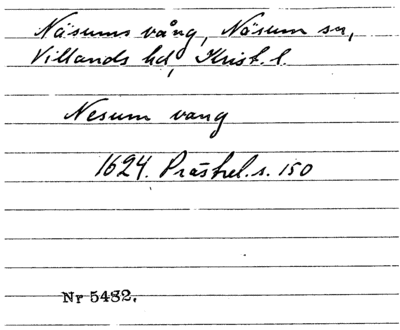 Näsums vång, Näsum sn,
Villands hd, Krist. l.
Nesum vang
1624. Prästrel. s. 150
Nr 5482.